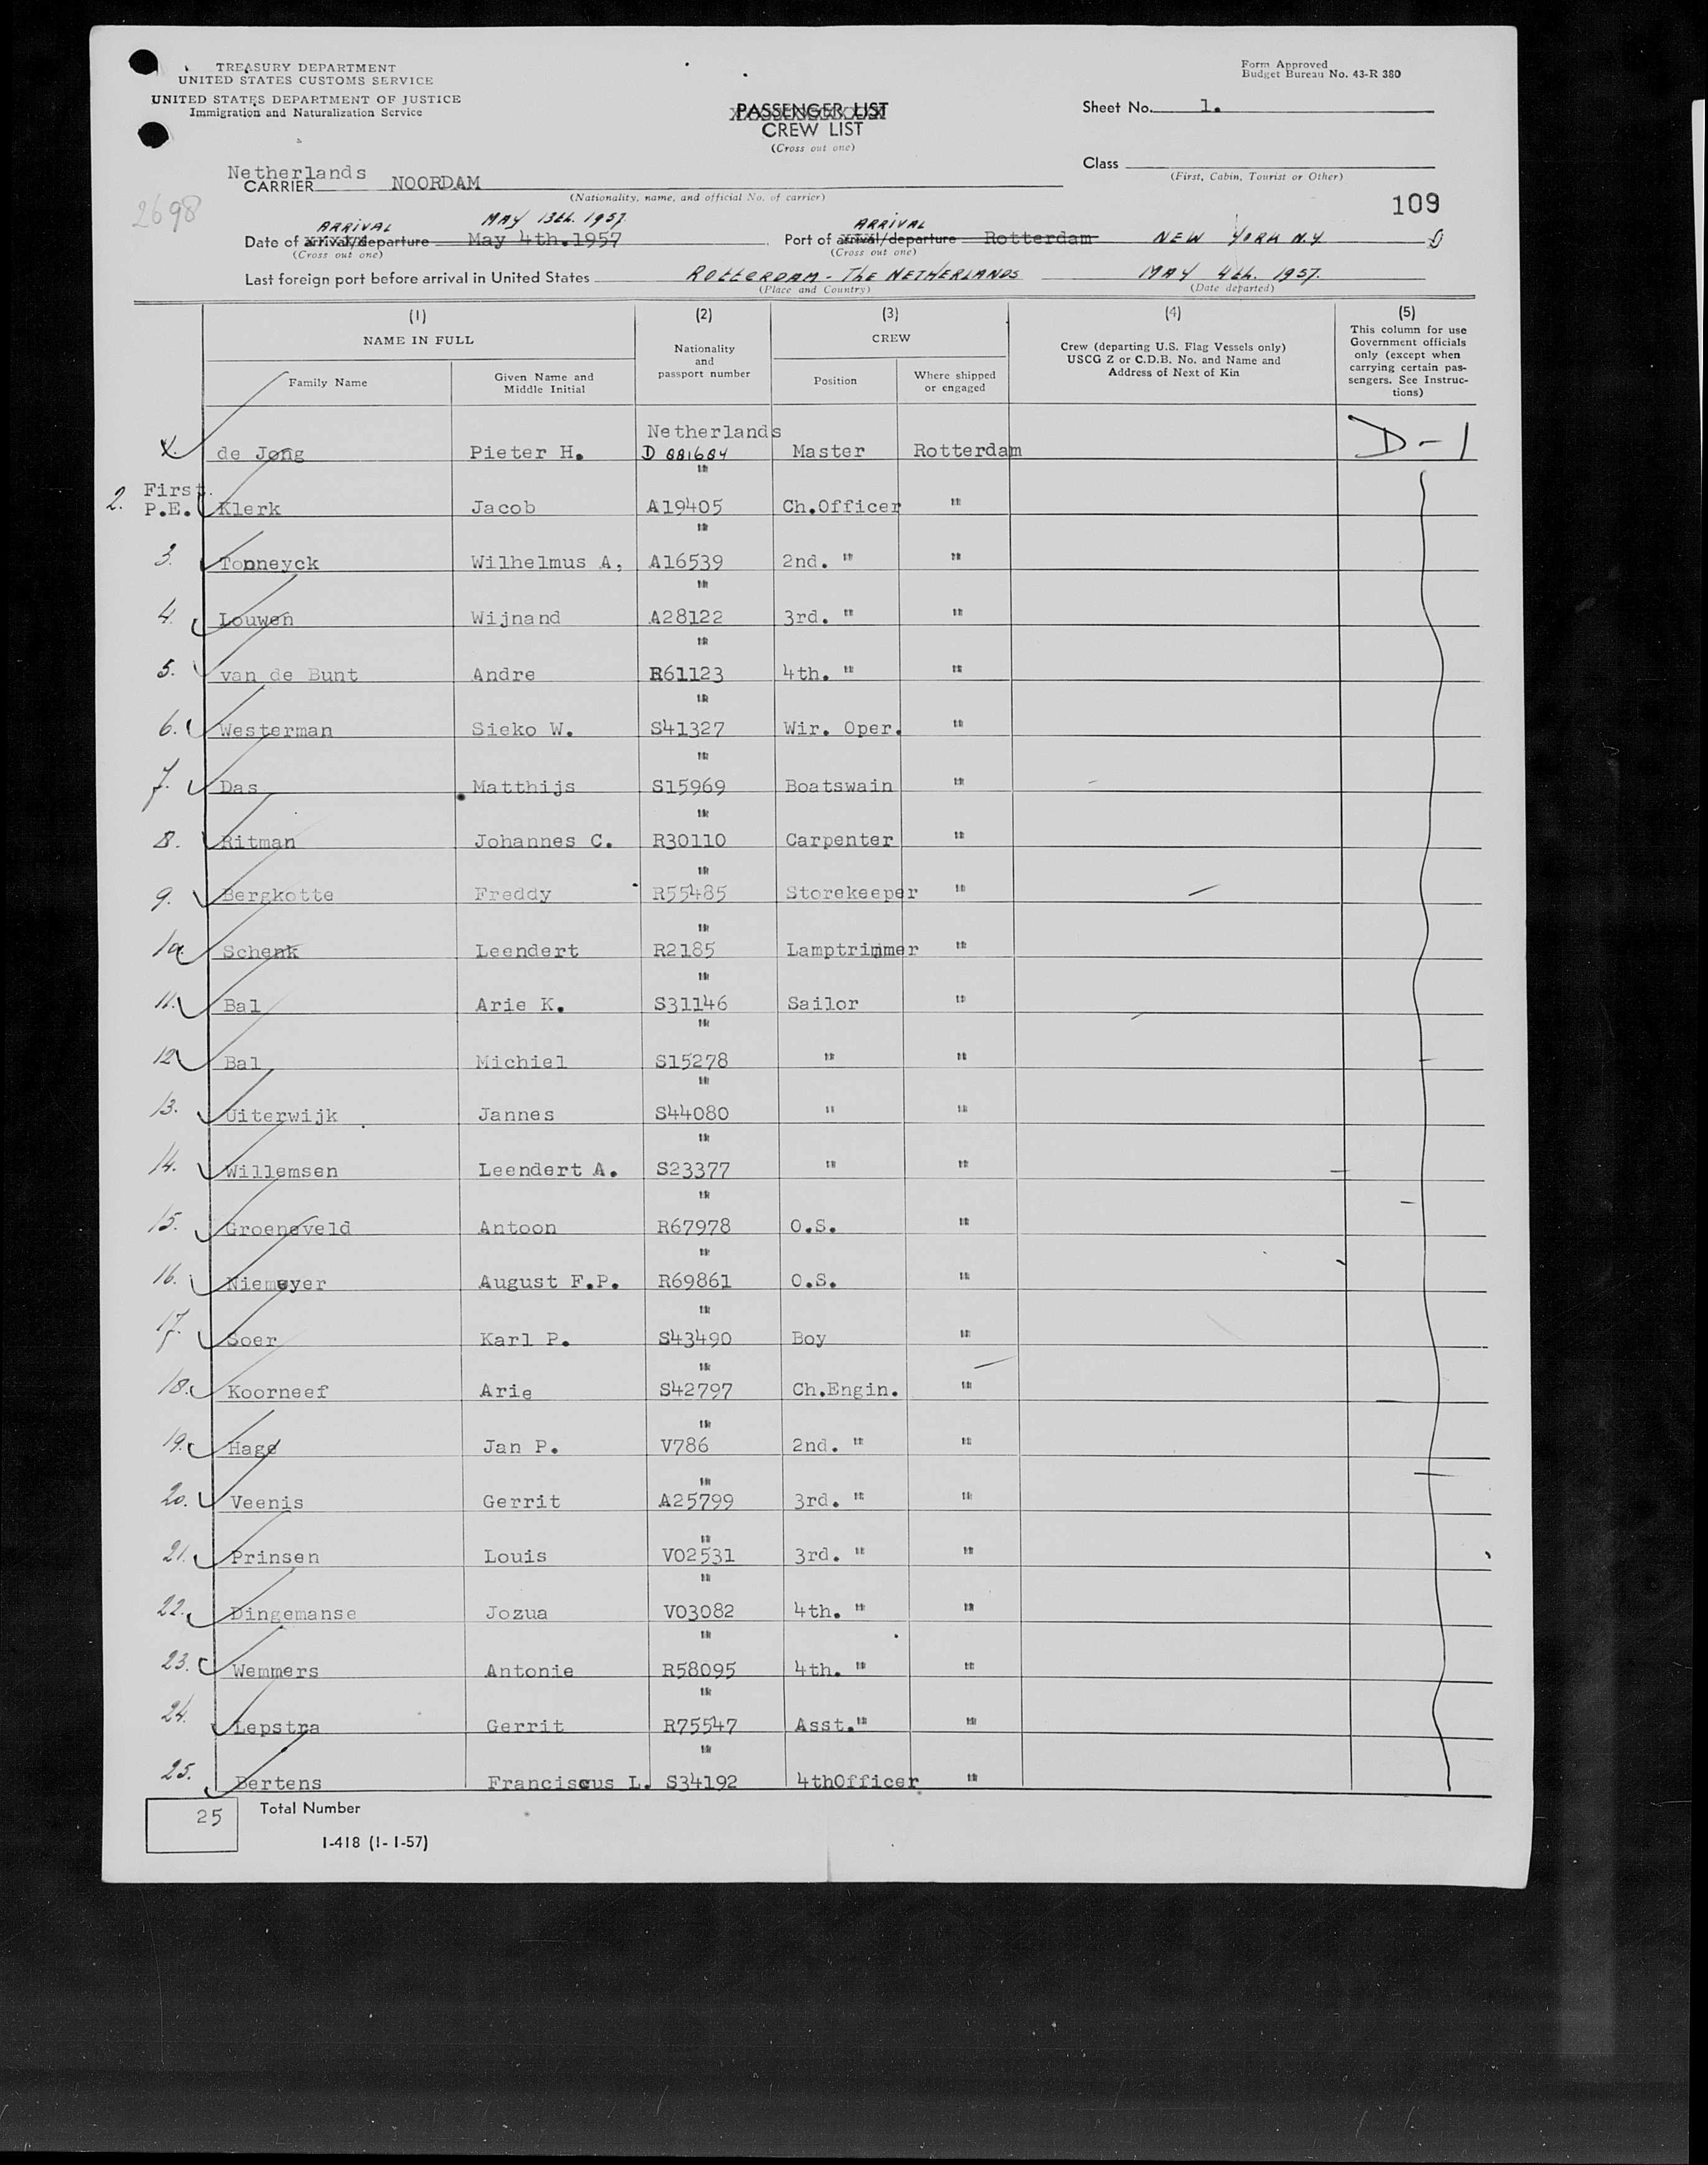 TREASURY DEPARTMENT
UNITED STATES CUSTOMS SERVICE
UNITED STATES DEPARTMENT OF JUSTICE
Immigration and Naturalization Service
Form Approved
Budget Bureau No. 43-R 380
PASSENGER LIST
CREW LIST
(Cross out one)
Sheet No. 1.
Class
(First, Cabin, Tourist or Other)
Netherlands
CARRIER NOORDAM
(Nationality, name, and official No. of carrier)
109
2698
ARRIVAL MAY 13th. 1957. ARRIVAL
Date of arrival/departure May 4th.1957 Port of arrival/departure Rotterdam NEW YORK N.Y.
(Cross out one) (Cross out one)
Last foreign port before arrival in United States ROTTERDAM - THE NETHERLANDS MAY 4th. 1957.
(Place and Country) (Date departed)
(1) (2) (3) (4) (5)
NAME IN FULL
Family Name
Given Name and Middle Initial
Nationality and passport number
CREW
Position
Where shipped or engaged
Crew (departing U.S. Flag Vessels only) USCG Z or C.D.B. No. and Name and Address of Next of Kin
This column for use Government officials only (except when carrying certain passengers. See Instructions)
Netherlands
de Jong Pieter H. D 881684 Master Rotterdam D-1
"
First.
2. P.E. Klerk Jacob A19405 Ch.Officer "
"
3. Tonneyck Wilhelmus A, A16539 2nd. " "
"
4. Louwen Wijnand A28122 3rd. " "
"
5. van de Bunt Andre R61123 4th. " "
"
6. Westerman Sieko W. S41327 Wir. Oper. "
"
7. Das Matthijs S15969 Boatswain "
"
8. Ritman Johannes C. R30110 Carpenter "
"
9. Bergkotte Freddy R55485 Storekeeper "
"
10. Schenk Leendert R2185 Lamptrimmer "
"
11. Bal Arie K. S31146 Sailor "
"
12 Bal Michiel S15278 " "
"
13. Uiterwijk Jannes S44080 " "
"
14. Willemsen Leendert A. S23377 " "
"
15. Groeneveld Antoon R67978 O.S. "
"
16. Niemeyer August F.P. R69861 O.S. "
"
17. Soer Karl P. S43490 Boy "
"
18. Koorneef Arie S42797 Ch.Engin. "
"
19. Hage Jan P. V786 2nd. " "
"
20. Veenis Gerrit A25799 3rd. " "
"
21. Prinsen Louis V02531 3rd. " "
"
22. Dingemanse Jozua V03082 4th. " "
"
23. Wemmers Antonie R58095 4th. " "
"
24. Lepstra Gerrit R75547 Asst." "
"
25. Bertens Franciscus L. S34192 4thOfficer "
25 Total Number
I-418 (1-1-57)